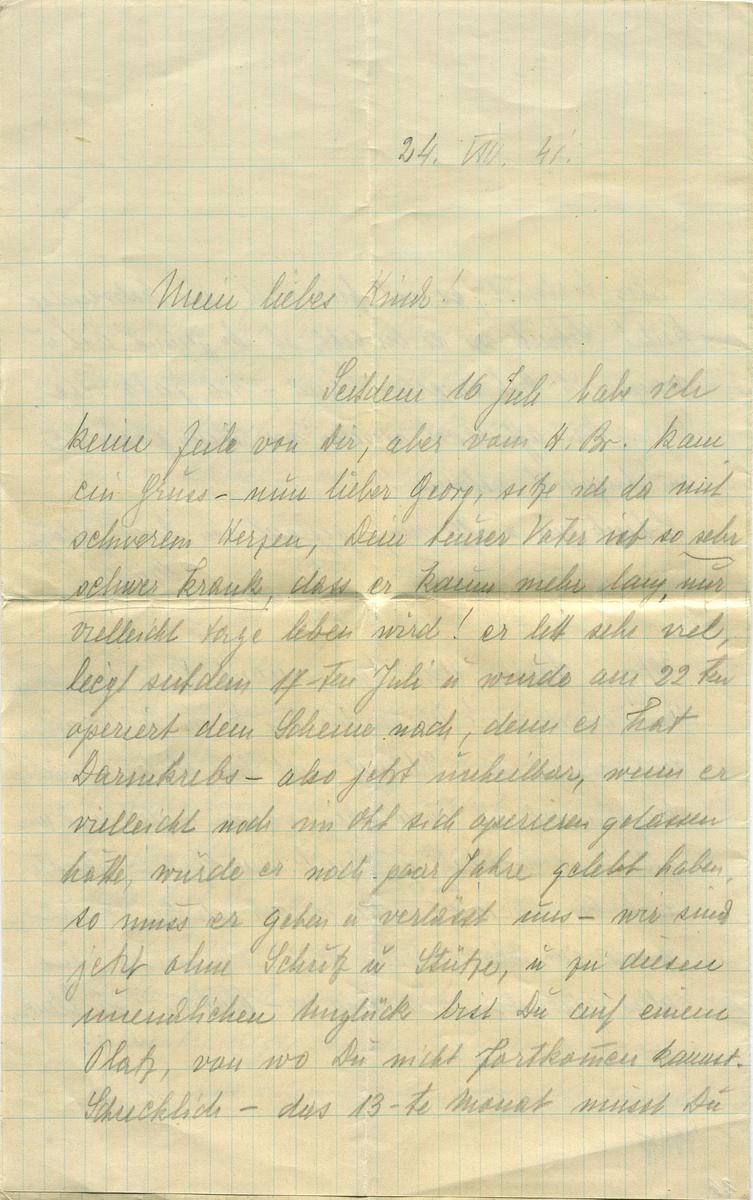 24. VIII. 41.
Mein liebes Kind!
Seitdem 16 Juli habe ich
keine Zeile von Dir, aber vom H. Br. kam
ein Gruss – nun lieber Georg, sitze ich da mit
schwerem Herzen, Dein teurer Vater ist so sehr
schwer krank, dass er kaum mehr lang, nur
vielleicht tage leben wird! er litt sehr viel,
liegt seitdem 17-ten Juli u wurde am 22 ten
operiert dem Scheine nach, denn er hat
Darmkrebs – also jetzt unheilbar, wenn er
vielleicht noch im Okt sich operieren gelassen
hätte, würde er noch paar Jahre gelebt haben,
so muss er gehen u verlässt uns – wir sind
jetzt ohne Schutz u Stütze, u zu diesen
unendlichen Unglück bist Du auf einem
Platz, von wo Du nicht fortkom̄en kannst.
Schrecklich – das 13-te Monat musst Du